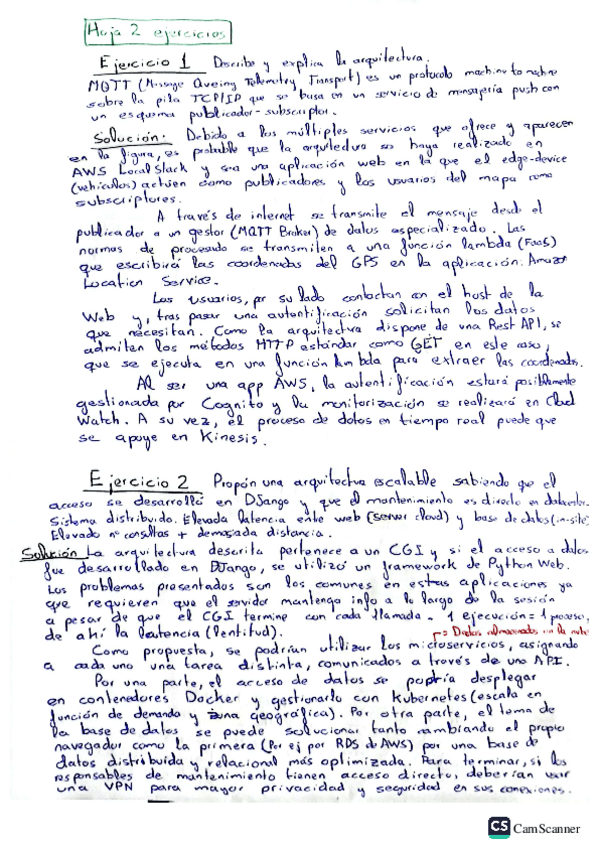 Hoja 2 ejercicios
Ejercicio 1 Describe y explica la arquitectura.
MQTT (Message Queing Telemetry Transport) es un protocolo machine to machine
sobre la pila TCP/IP que se basa en un servicio de mensajería push con
un esquema publicador-subscriptor.
Solución: Debido a los múltiples servicios que ofrece y aparecen
en la figura, es probable que la arquitectura se haya realizado en
AWS LocalStack y sea una aplicación web en la que el edge-device
(vehículos) actúen como publicadores y los usuarios del mapa como
subscriptores.
A través de internet se transmite el mensaje desde el
publicador a un gestor (MQTT Broker) de datos especializado. Las
normas de procesado se transmiten a una función lambda (FaaS)
que escribirá las coordenadas del GPS en la aplicación: Amazon
Location Service.
Los usuarios, por su lado contactan con el host de la
Web y, tras pasar una autentificación solicitan los datos
que necesitan. Como la arquitectura dispone de una Rest API, se
admiten los métodos HTTP estándar como GET en este caso,
que se ejecuta en una función lambda para extraer las coordenadas.
Al ser una app AWS, la autentificación estará posiblemente
gestionada por Cognito y la monitorización se realizará en Cloud
Watch. A su vez, el proceso de datos en tiempo real puede que
se apoye en Kinesis.
Ejercicio 2 Propón una arquitectura escalable sabiendo que el
acceso se desarrolló en DJango y que el mantenimiento es directo en datacenter.
Sistema distribuido. Elevada latencia entre web (server cloud) y base de datos (in-site)
Elevado nº consultas + demasiada distancia.
Solución La arquitectura descrita pertenece a un CGI y si el acceso a datos
fue desarrollado en DJango, se utilizó un framework de Python Web.
Los problemas presentados son los comunes en estas aplicaciones ya
que requieren que el servidor mantenga info a lo largo de la sesión
a pesar de que el CGI termine con cada llamada. 1 ejecución = 1 proceso,
de ahí la latencia (lentitud). = Datos almacenados en la nube
Como propuesta, se podrían utilizar los microservicios, asignando
a cada uno una tarea distinta, comunicados a través de una API.
Por una parte, el acceso de datos se podría desplegar
en contenedores Docker y gestionarlo con Kubernetes (escala en
función de demanda y zona geográfica). Por otra parte, el tema de
la base de datos se puede solucionar tanto cambiando el propio
navegador como la primera (Por ej por RDS de AWS) por una base de
datos distribuida y relacional más optimizada. Para terminar, si los
responsables de mantenimiento tienen acceso directo, deberían usar
una VPN para mayor privacidad y seguridad en sus conexiones.
CS CamScanner